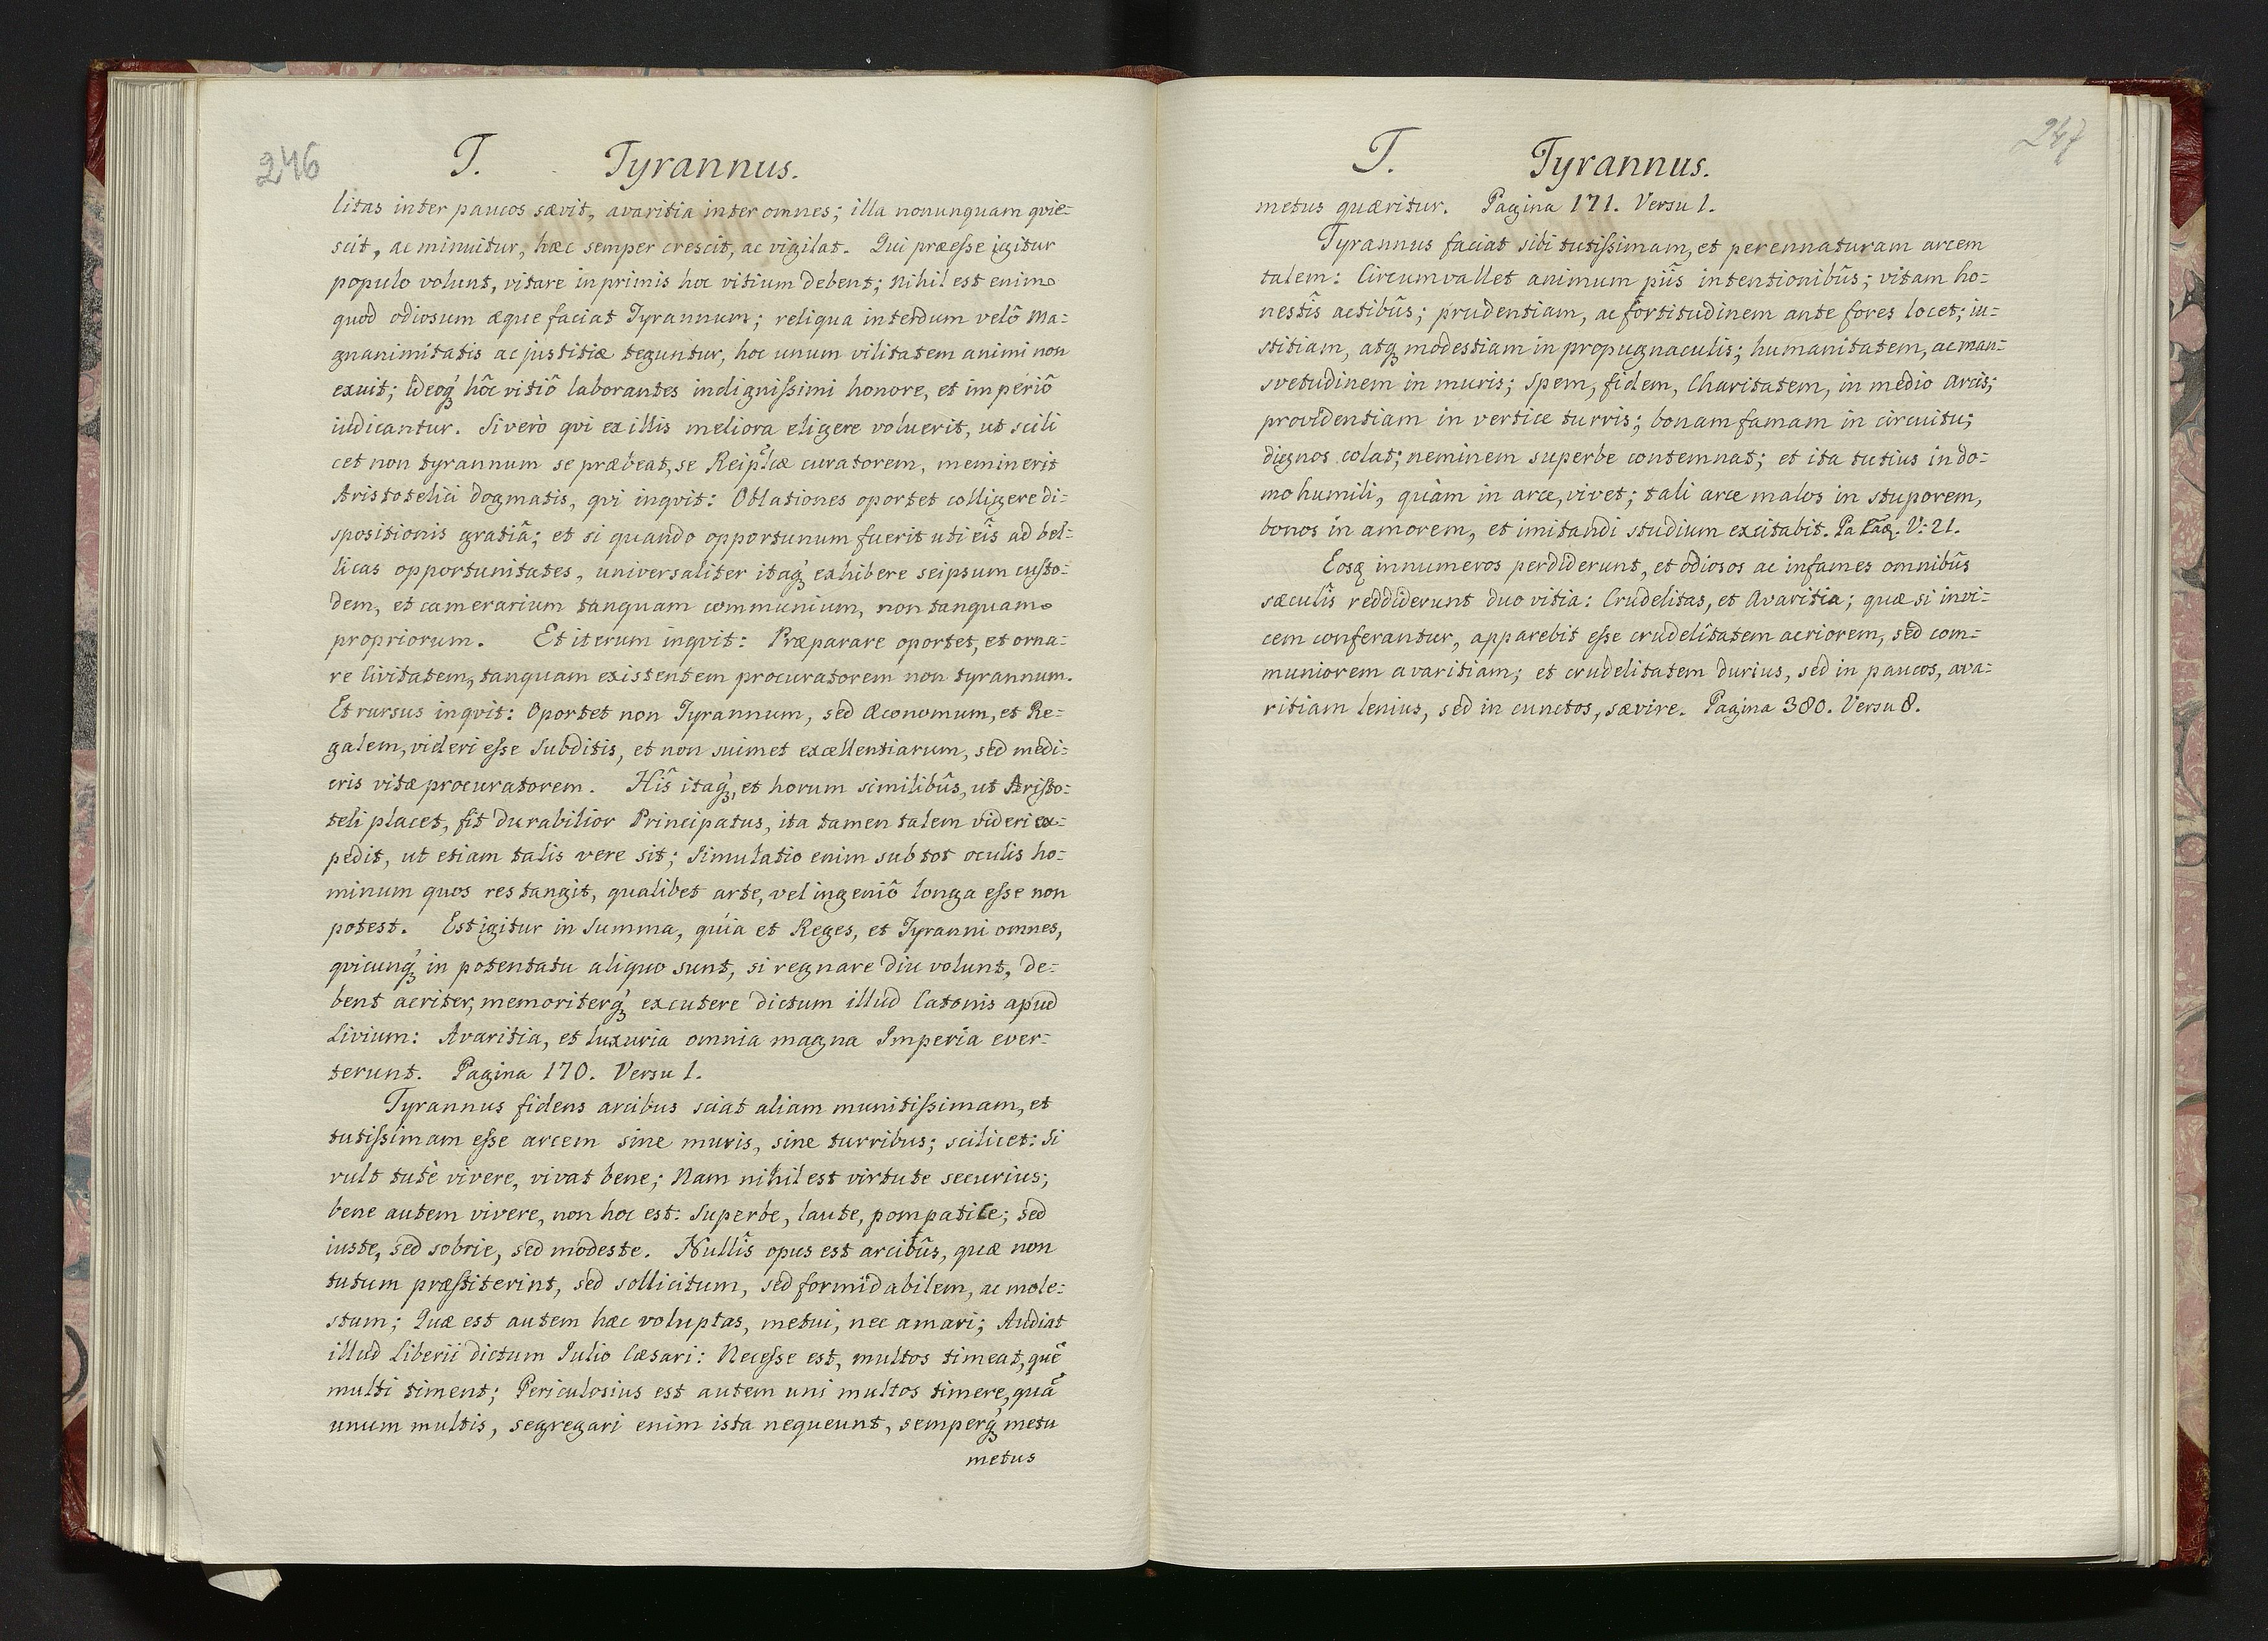 246
T. Tyrannus.
litas inter paucos sævit, avaritia inter omnes; illa nonunquam qvie=
scit, ac minuitur, hæc semper crescit, ac vigilat. Qui præeſse igitur
populo volunt, vitare inprimis hoc vitium debent; Nihil est enim
quod odiosum æque faciat Tyrannum; reliqua interdum velô Ma=
gnanimitatis ac justitiæ teguntur, hoc unum vilitatem animi non
exuit; Ideoq́ꝫ hôc vitiô laborantes indigniſsimi honore, et imperiô
iudicantur. Si verò qvi ex illis meliora eligere voluerit, ut scili
cet non tyrannum se præbeat, se Reip̃lcæ curatorem, meminerit
Aristotelici dogmatis, qvi inqvit: Oblationes oportet colligere di=
spositionis gratiâ; et si quando opportunum fuerit uti eîs ad bel=
licas opportunitates, universaliter itaq́ꝫ exhibere seipsum cuſto=
dem, et camerarium tanquam communium, non tanquam
propriorum. Et iterum inqvit: Præparare oportet, et orna=
re Civitatem, tanquam existentem procuratorem non tyrannum.
Et rursus inqvit: Oportet non Tyrannum, sed Œconomum, et Re=
galem, videri eſse Subditis, et non suimet excellentiarum, sed medi=
cris vitæ procuratorem. Hîs itaq́ꝫ, et horum similibûs, ut Ariſto=
teli placet, fit durabilior Principatus, ita tamen talem videri ex=
pedit, ut etiam talis vere sit; Simulatio enim sub tot oculis ho=
minum quos res tangit, qualibet arte, vel ingeniô longa eſse non
potest. Est igitur in Summa, quia et Reges, et Tyranni omnes,
qvicunq́ꝫ in potentatu aliquo sunt, si regnare diu volunt, de=
bent acriter, memoriterq́ꝫ excutere dictum illud Catonis apud
Livium: Avaritia, et luxuria omnia magna Imperia ever=
terunt. Pagina 170. Versu 1.
Tyrannus fidens arcibus sciat aliam munitiſsimam, et
tutiſsimam eſse arcem sine muris, sine turribus; scilicet: Si
vult tutè vivere, vivat bene; Nam nihil est virtute securius;
bene autem vivere, non hoc est: Superbe, laute, pompatice; sed
iuste, sed sobrie, sed modeste. Nullîs opus est arcibûs, quæ non
tutum præſtiterint, sed sollicitum, sed formidabilem, ac mole=
stum; Quæ est autem hæc voluptas, metui, nec amari; Audiat
illud Liberii dictum Iulio Cæsari: Neceſse est, multos timeat, quẽ
multi timent; Periculosius est autem uni multos timere, quã
unum multis, segregari enim ista nequeunt, semperq́ꝫ metu
metus
247
T. Tyrannus.
metus quæritur. Pagina 171. Versu 1.
Tyrannus faciat sibi tutiſsimam, et perennaturam arcem
talem: Circumvallet animum piîs intentionibûs; vitam ho=
nestîs actibûs; prudentiam, ac fortitudinem ante fores locet; iu=
stitiam, atqꝫ modestiam in propugnaculis; humanitatem, ac man=
svetudinem in muris; Spem, fidem, Charitatem, in medio arcis;
providentiam in vertice turris; bonam famam in circuitu;
dignos colat; neminem superbe contemnat; et ita tutius in do=
mo humili, quàm in arce, vivet; tali arce malos in stuporem,
bonos in amorem, et imitandi studium excitabit. Pa eãd. V: 21.
Eosqꝫ innumeros perdiderunt, et odiosos ac infames omnibûs
sæculîs reddiderunt duo vitia: Crudelitas, et Avaritia; quæ si invi=
cem conferantur, apparebit eſse crudelitatem acriorem, sed com=
muniorem avaritiam; et crudelitatem durius, sed in paucos, ava=
ritiam lenius, sed in cunctos, sævire. Pagina 380. Versu 8.